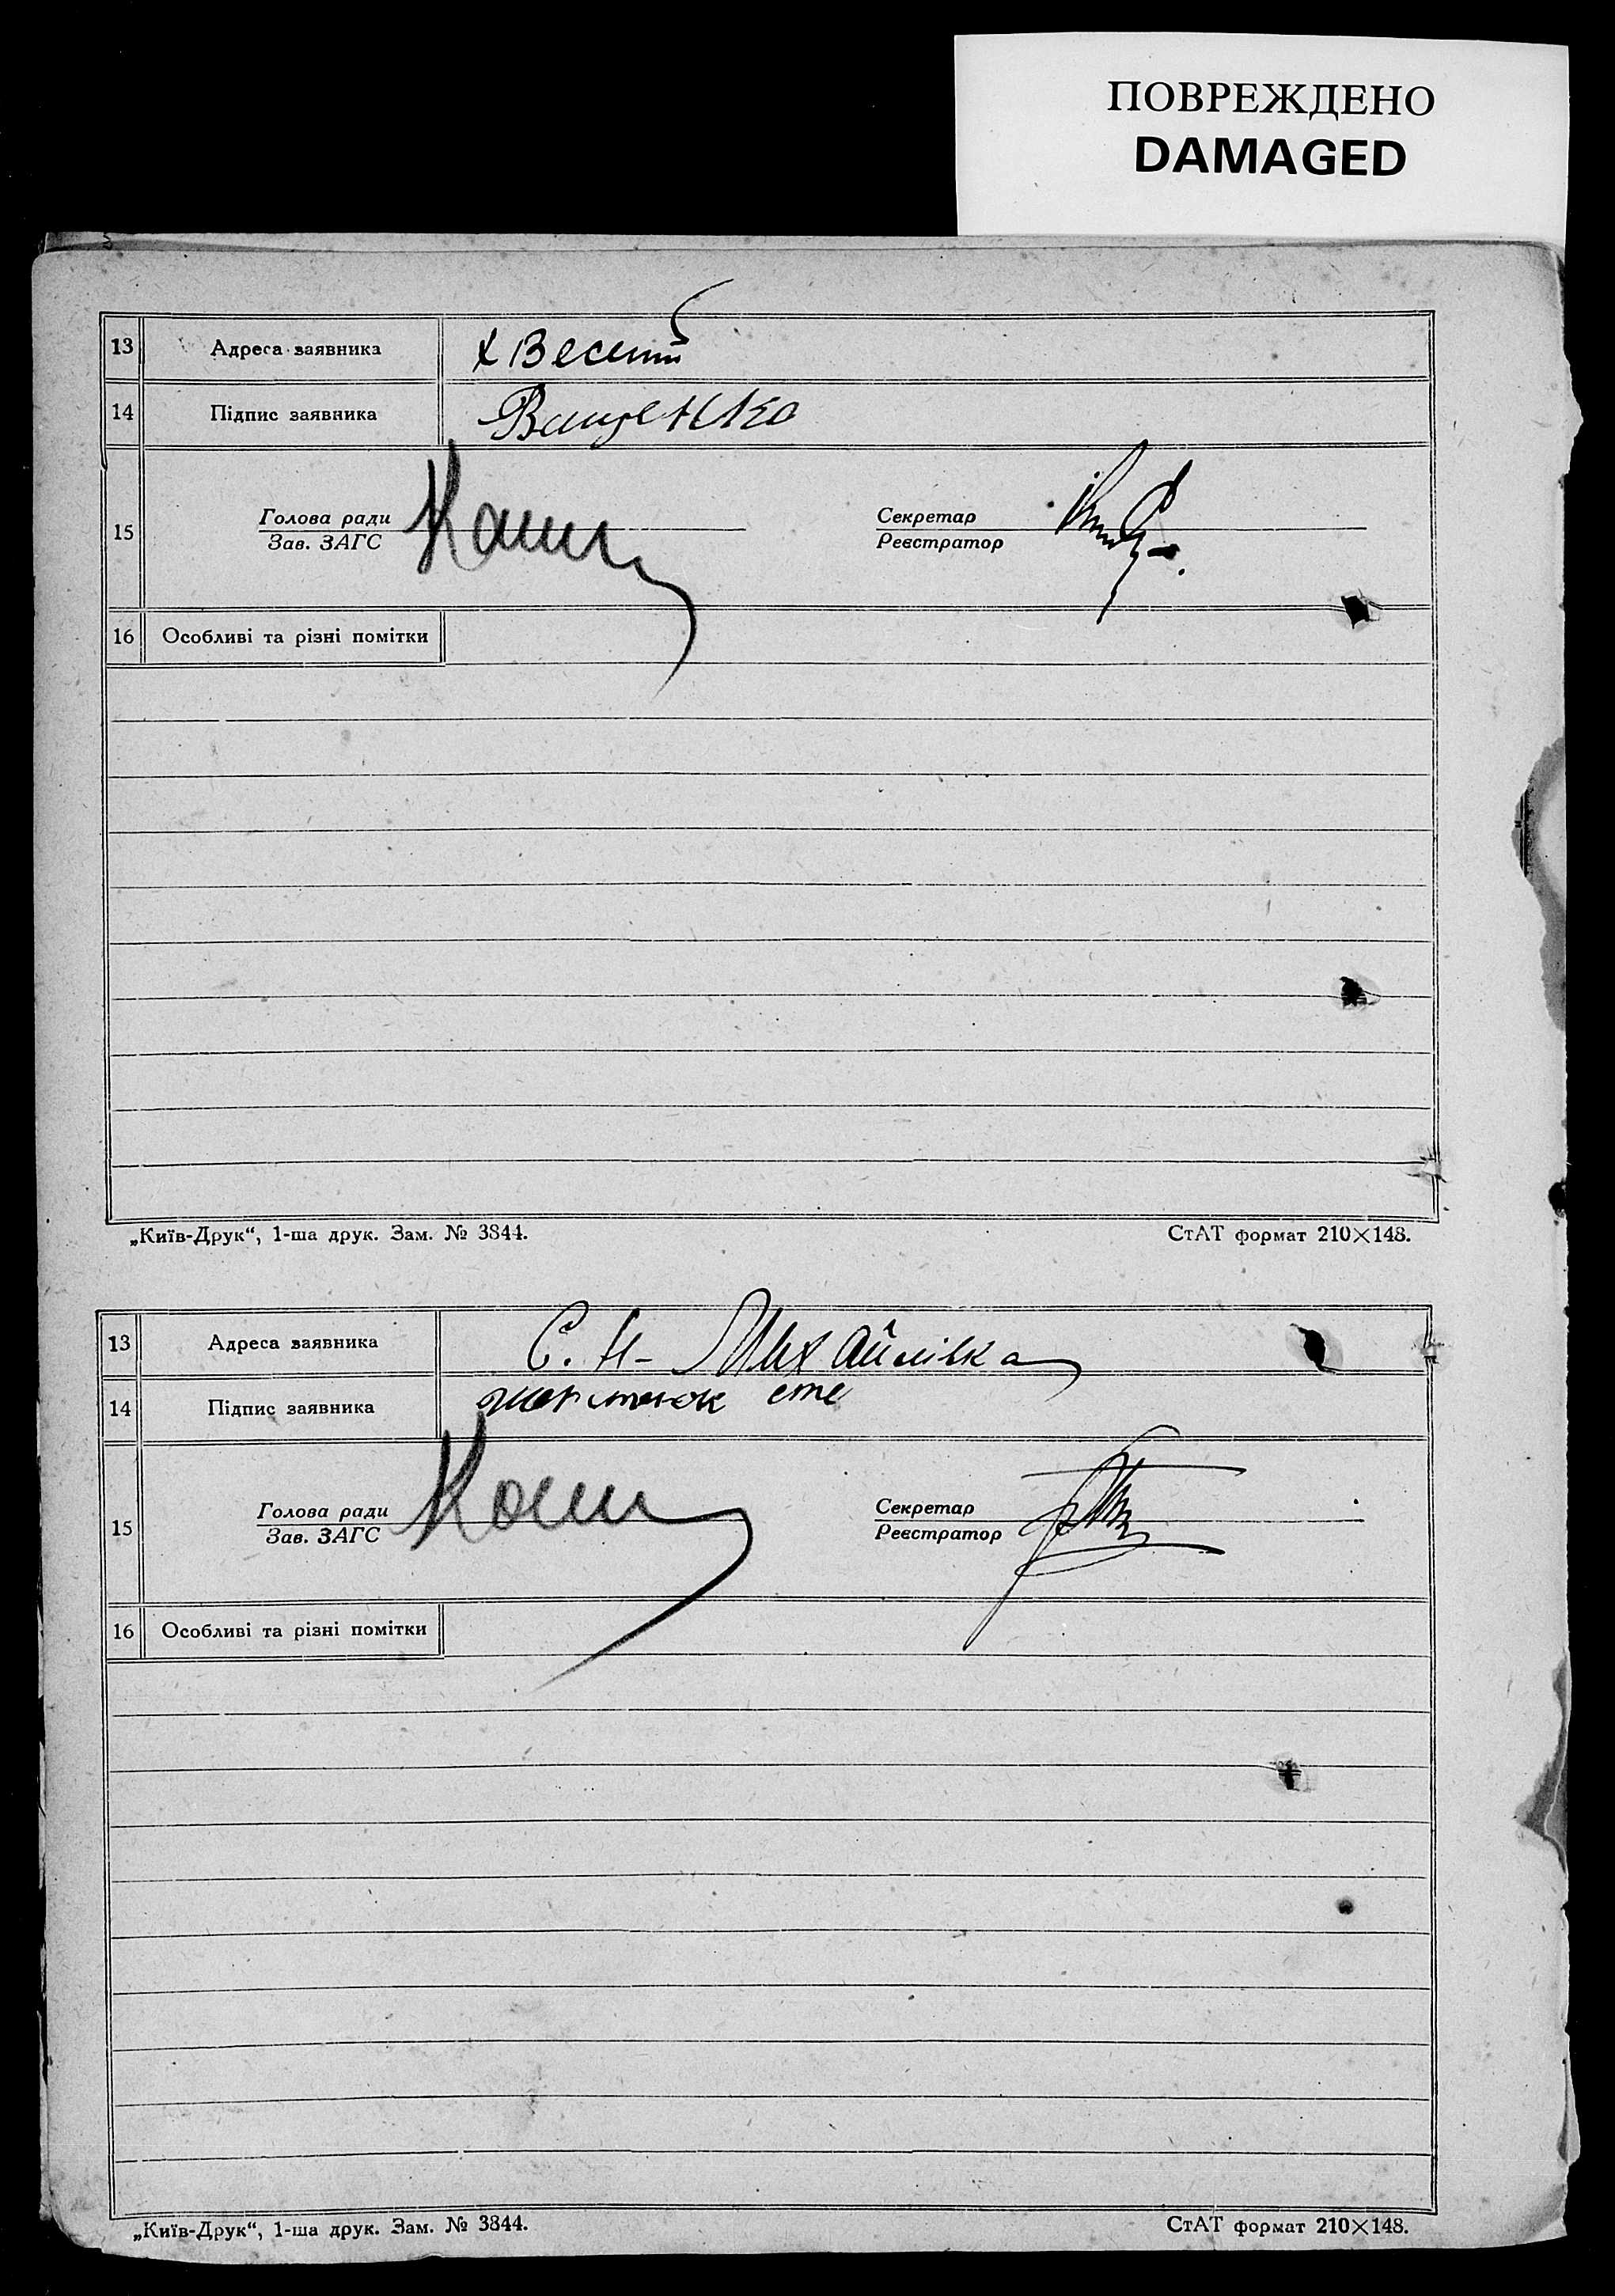 ПОВРЕЖДЕНО
DAMAGED
13 Адреса заявника х Веселий
14 Підпис заявника Ващенко
15 Голова ради Секретар
Зав. ЗАГС Реєстратор
16 Особливі та різні помітки
„Київ-Друк“, 1-ша друк. Зам. № 3844. СтАТ формат 210×148.
13 Адреса заявника С. Н-Михайлівка
14 Підпис заявника
15 Голова ради Секретар
Зав. ЗАГС Реєстратор
16 Особливі та різні помітки
„Київ-Друк“, 1-ша друк. Зам. № 3844. СтАТ формат 210×148.